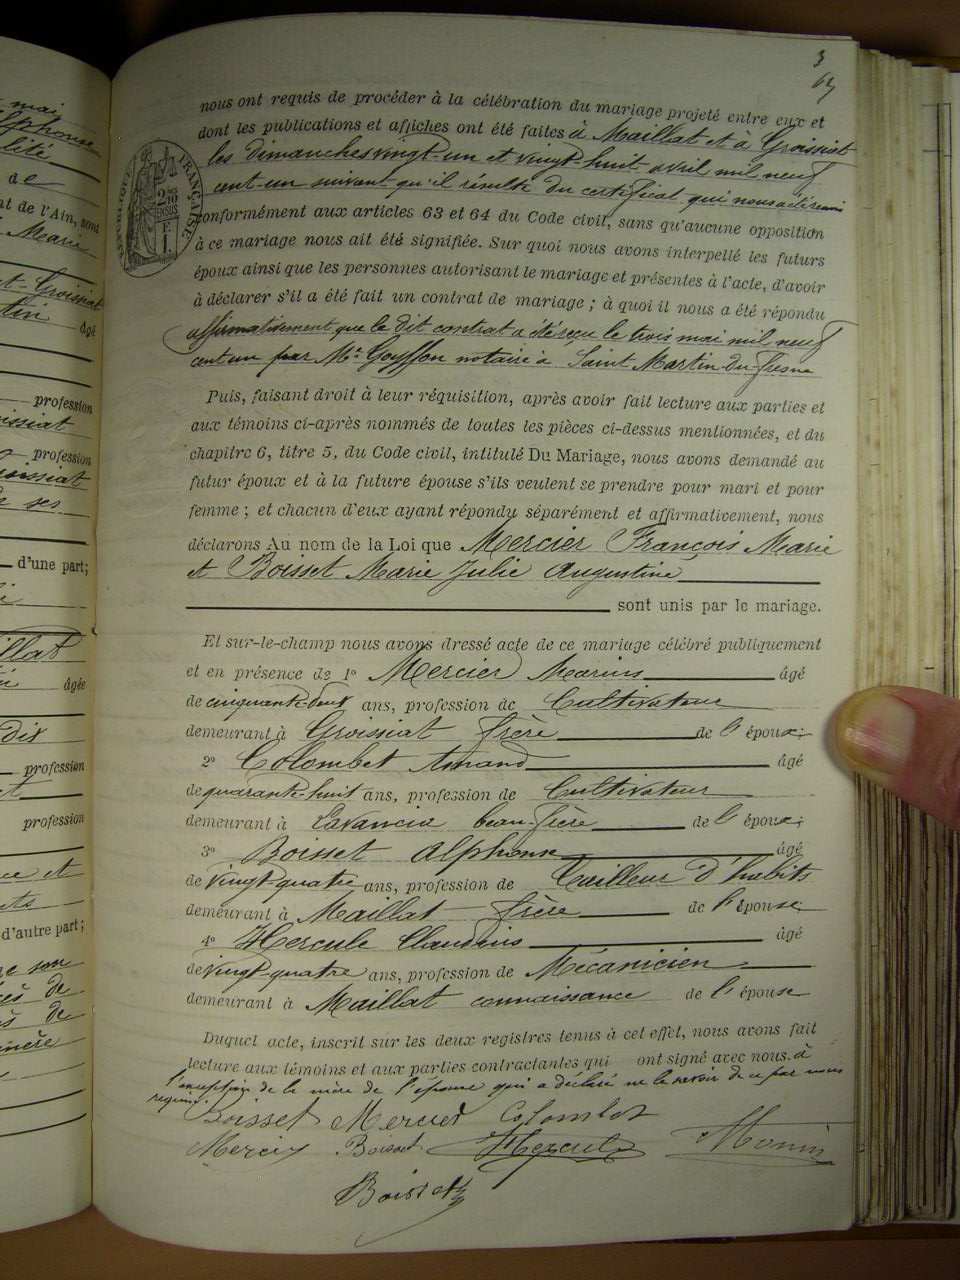 3
67
nous ont requis de procéder à la célébration du mariage projeté entre eux et
dont les publications et affiches ont été faites à Maillat et à Groissiat
les dimanches vingt-un et vingt-huit avril mil neuf
cent-un suivant qu'il résulte du certificat qui nous a été remis
conformément aux articles 63 et 64 du Code civil, sans qu'aucune opposition
à ce mariage nous ait été signifiée. Sur quoi nous avons interpellé les futurs
époux ainsi que les personnes autorisant le mariage et présentes à l'acte, d'avoir
à déclarer s'il a été fait un contrat de mariage ; à quoi il nous a été répondu
affirmativement que le dit contrat a été reçu le trois mai mil neuf
cent un par Me Goyffon notaire à Saint Martin du-fresne
Puis, faisant droit à leur réquisition, après avoir fait lecture aux parties et
aux témoins ci-après nommés de toutes les pièces ci-dessus mentionnées, et du
chapitre 6, titre 5, du Code civil, intitulé Du Mariage, nous avons demandé au
futur époux et à la future épouse s'ils veulent se prendre pour mari et pour
femme ; et chacun d'eux ayant répondu séparément et affirmativement, nous
déclarons Au nom de la Loi que Mercier François Marie
et Boisset Marie Julie Augustine
sont unis par le mariage.
Et sur-le-champ nous avons dressé acte de ce mariage célébré publiquement
et en présence de 1° Mercier Marius âgé
de cinquante-deux ans, profession de Cultivateur
demeurant à Groissiat frère de l'époux;
2° Colombet Amand âgé
de quarante-huit ans, profession de Cultivateur
demeurant à Lavancia beau-frère de l'époux;
3° Boisset Alphonse âgé
de vingt-quatre ans, profession de Tailleur d'habits
demeurant à Maillat frère de l'épouse
4° Hercule Claudius âgé
de vingt-quatre ans, profession de Mécanicien
demeurant à Maillat connaissance de l'épouse
Duquel acte, inscrit sur les deux registres tenus à cet effet, nous avons fait
lecture aux témoins et aux parties contractantes qui ont signé avec nous à
l'exception de la mère de l'épouse qui a déclaré ne le savoir de ce par nous
requise.
Boisset Mercier Colombet
Mercier Boisset Hercule Monin
Boisset